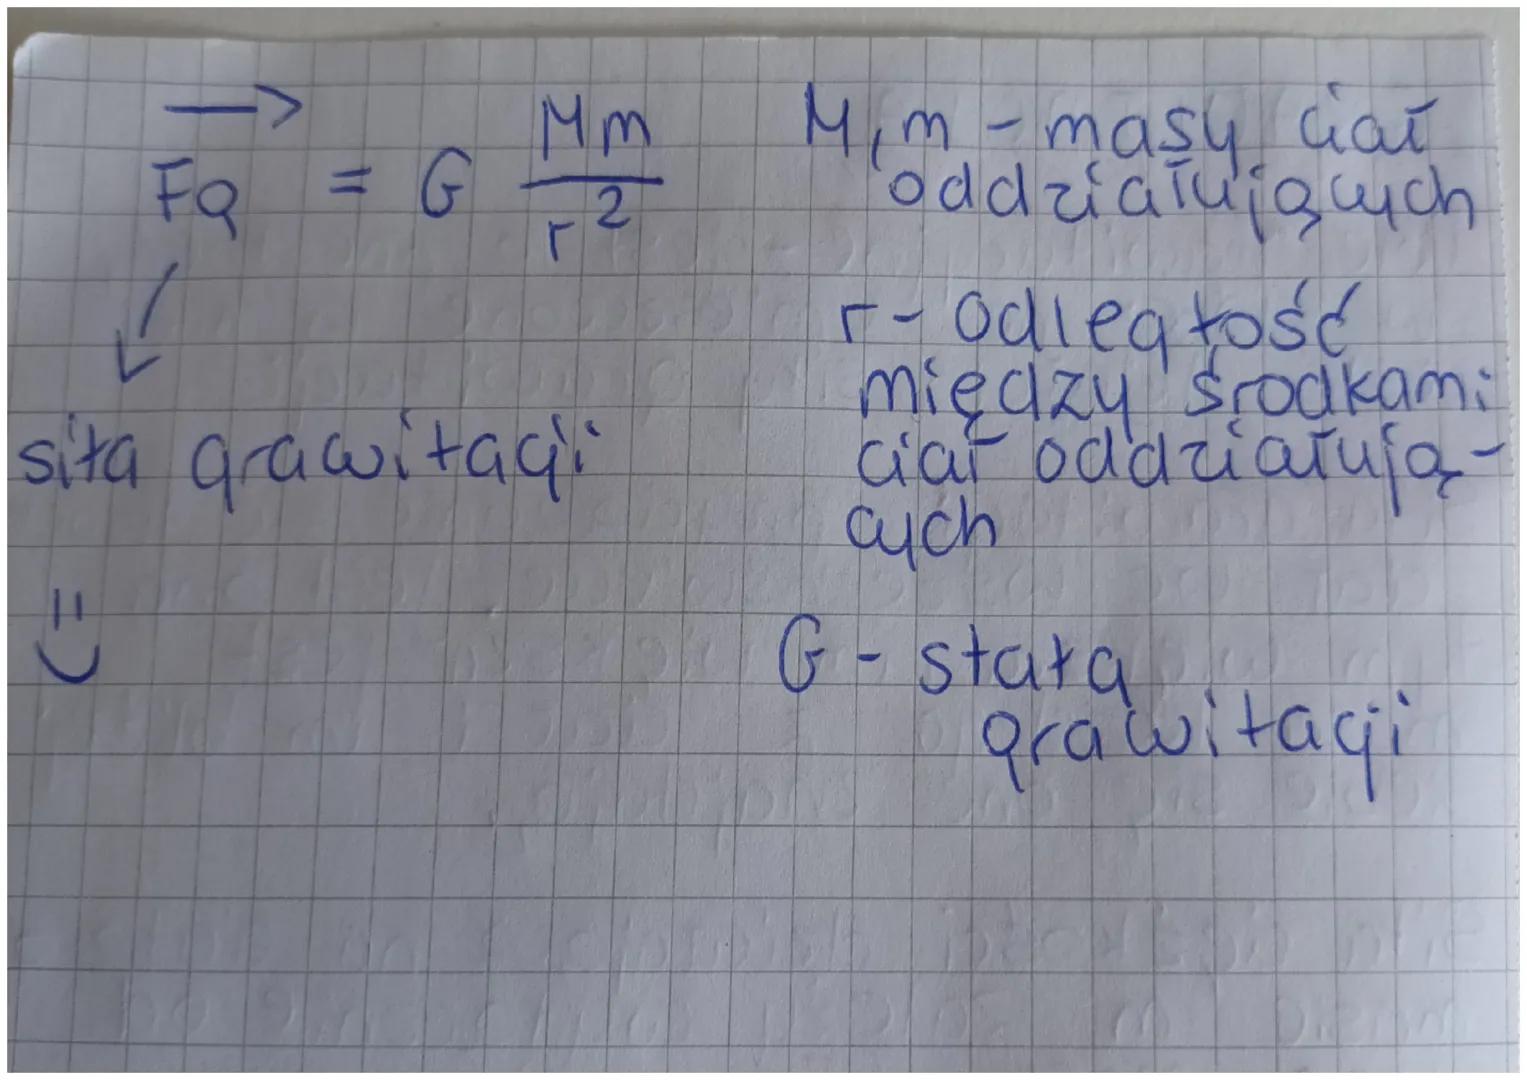 →
Fg = G Mm/r²
↓
siła grawitacji
M, m - masy ciał
oddziałujących
r - odległość
między środkami
ciał oddziałują-
cych
G - stała
grawitacji